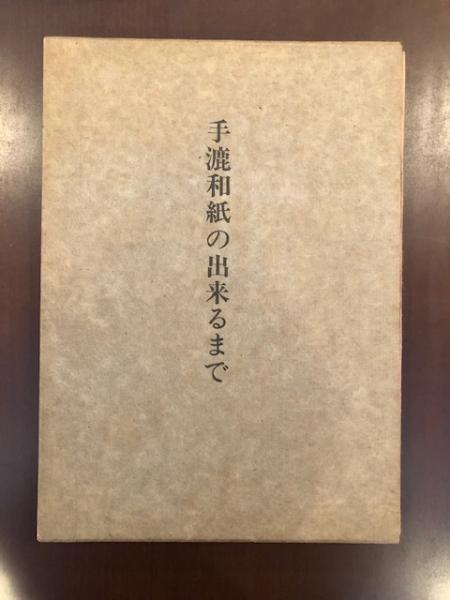 手漉和紙の出来るまで